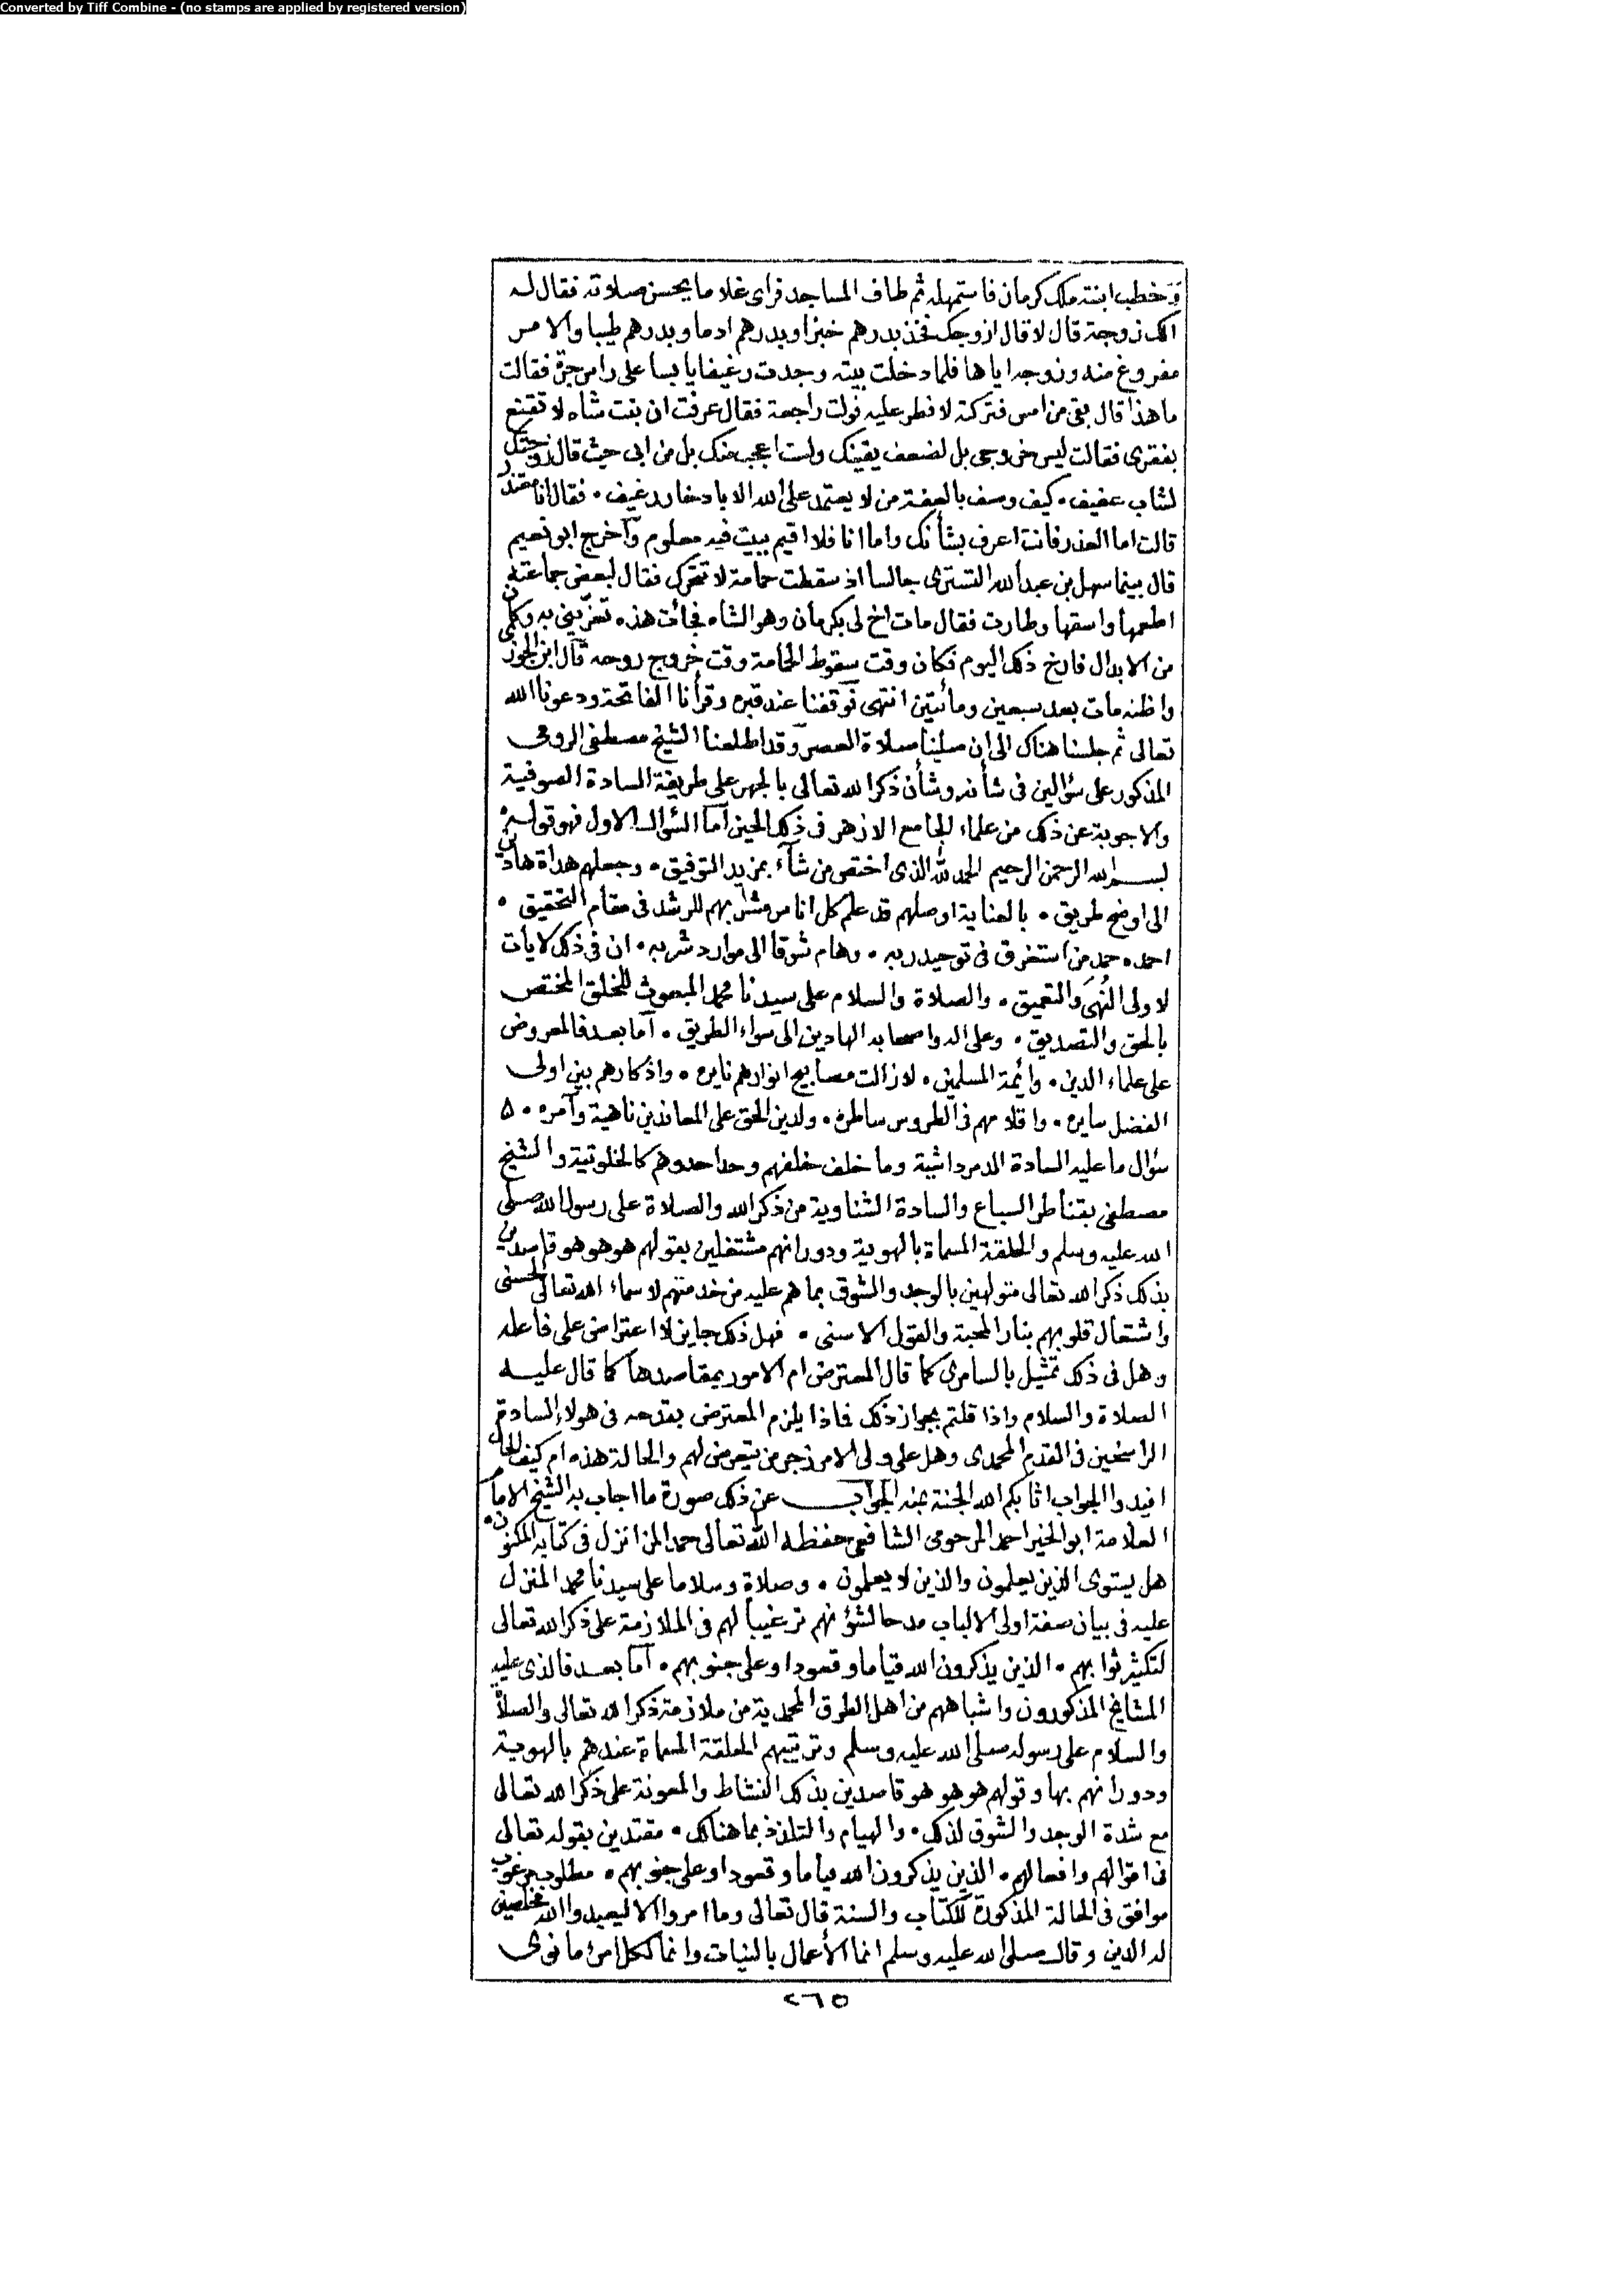 Converted by Tiff Combine - (no stamps are applied by registered version)
وخطب ابنته ملك كرمان فاستمهله ثم طاف المساجد فراى غلاما يحسن صلاته فقال له
الك زوجة قال لا قال ازوجك فخذ بدرهم خبزا وبدرهم ادما وبدرهم طيبا والامر
مفروغ منه وزوجه اياها فلما دخلت بيته وجدت رغيفا يابسا على راس جرة فقالت
ما هذا قال بقى من امس فتركته لافطر عليه فولت راجعة فقال عرفت ان بنت شاه لا تقنع
بفقرى فقالت ليس خروجى بل لضعف يقينك ولست اعجب منك بل من ابى حيث قال زوجتك
لشاب عفيف • كيف وصف بالعفة من لا يعتمد على الله الا بادخار رغيف • فقال انا معتذر
قالت اما العذر فانت اعرف بشأنك واما انا فلا اقيم ببيت فيه معلوم وأخرج ابو نعيم
قال بينما سهل بن عبد الله التسترى جالسا اذ سقطت حمامة لا تتحرك فقال لبعض جماعته
اطعمها واسقها وطارت فقال مات اخ لى بكرمان وهو الشاه فجائت هذه تعزينى به وكان
من الابدال فارخ ذلك اليوم فكان وقت سقوط الحمامة وقت خروج روحه قال ابن الجوزى
واظنه مات بعد سبعين ومائتين انتهى فوقفنا عند قبره وقرأنا الفاتحة ودعونا الله
تعالى ثم جلسنا هناك الى ان صلينا صلاة العصر وقد اطلعنا الشيخ مصطفى الرومى
المذكور على سؤالين فى شأنه وشأن ذكر الله تعالى بالجهر على طريقة السادة الصوفية
والاجوبة عن ذلك من علماء الجامع الازهر فى ذلك الحين أما السؤال الاول فهو قوله
بسم الله الرحمن الرحيم الحمد لله الذى اختص من شاء بمزيد التوفيق • وجعلهم هداة هادين
الى اوضح طريق • بالعناية اوصلهم قد علم كل اناس مشربهم للرشد فى مقام التحقيق •
احمده حمد من استغرق فى توحيد ربه • وهام شوقا الى موارد شربه • ان فى ذلك لايات
لاولى النهى والتعميق • والصلاة والسلام على سيدنا محمد المبعوث للخلق المختص
بالحق والتصديق • وعلى اله واصحابه الهادين الى سواء الطريق • أما بعد فالمعروض
على علماء الدين • وائمة المسلمين • لازالت مصابيح انوارهم نايره • واذكارهم بين اولى
الفضل سايره • واقلامهم فى الطروس ساطره • ولدين الحق على المعاندين ناهية وآمره • ٥
سؤال ما عليه السادة الدمرداشية وما خلف خلفهم وحدا حدوهم كالخلوتية والشيخ
مصطفى بقناطر السباع والسادة الشناوية من ذكر الله والصلاة على رسول الله صلى
الله عليه وسلم والحلقة المسماة بالهوية ودورانهم مشتغلين بقولهم هو هو هو قاصدين
بذلك ذكر الله تعالى متولهين بالوجد والشوق بما هم عليه من خدمتهم لاسماء الله تعالى الحسنى
واشتعال قلوبهم بنار المحبة والقول الاسنى • فهل ذلك جايز لا اعتراض على فاعله
وهل فى ذلك تمثيل بالسامرى كما قال المعترض ام الامور بمقاصدها كما قال عليه
الصلاة والسلام واذا قلتم بجواز ذلك فاذا يلزم المعترض بقدحه فى هولاء السادة
الراسخين فى القدم المحمدى وهل على ولى الامر زجر من يتعرض لهم والحالة هذه ام كيف الحال
افيدوا الجواب اثابكم الله الجنة بمنه الجواب عن ذلك صورة ما اجاب به الشيخ الامام
العلامة ابو الخير احمد المرحومى الشافعى حفظه الله تعالى حمدا لمن انزل فى كتابه المكنون
هل يستوى الذين يعلمون والذين لا يعلمون • وصلاة وسلاما على سيدنا محمد المنزل
عليه فى بيان صفة اولى الالباب مدحا لشؤنهم ترغيبا لهم فى الملازمة على ذكر الله تعالى
لتكثير ثوابهم • الذين يذكرون الله قياما وقعودا وعلى جنوبهم • أما بعد فالذى عليه
المشايخ المذكورون واشباههم من اهل الطرق المحمدية من ملازمة ذكر الله تعالى والصلاة
والسلام على رسوله صلى الله عليه وسلم وترتيبهم الحلقة المسماة عندهم بالهوية
ودورانهم بها وقولهم هو هو هو قاصدين بذلك النشاط والمعونة على ذكر الله تعالى
مع شدة الوجد والشوق لذلك • والهيام والتلذذ بما هنالك • مقتدين بقوله تعالى
فى اقوالهم وافعالهم • الذين يذكرون الله قياما وقعودا وعلى جنوبهم • مطلوب مرغوب
موافق فى الحالة المذكورة للكتاب والسنة قال تعالى وما امروا الا ليعبدوا الله مخلصين
له الدين وقال صلى الله عليه وسلم انما الأعمال بالنيات وانما لكل امرئ ما نوى
٢٦٥